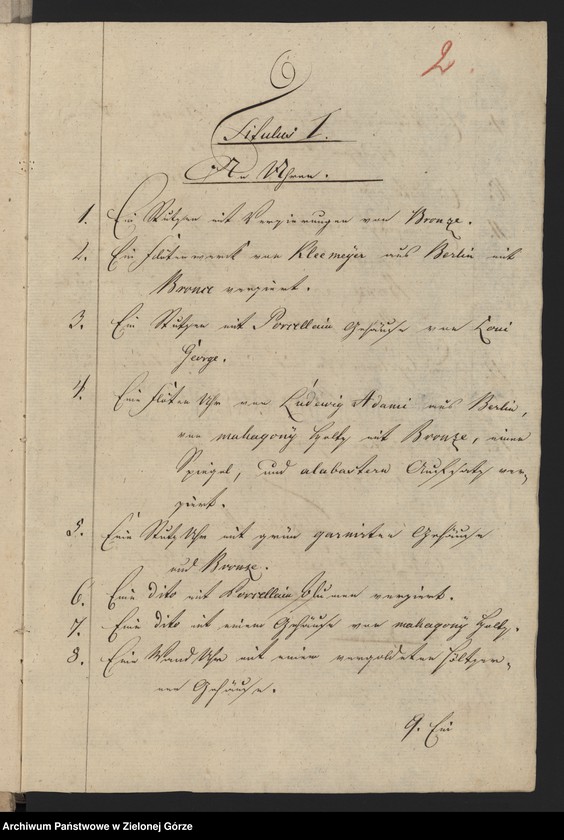 2.
Titulus I.
An Uhren.
1. Ein Stutzer mit Verzierungen von Bronze.
2. Ein Flötenwerck von Kleemeyer aus Berlin mit
Bronce verziert.
3. Ein Stutzer mit Porcellain Gehäuse von Loui
George.
4. Eine Flöten Uhr von Ludewig Adami aus Berlin,
von mahagony Holtz mit Bronze, einem
Spiegel, und alabastern Aufsatz ver-
ziert.
5. Eine Stutz Uhr mit grün garnirten Gehäuse
und Bronze.
6. Eine dito mit Porcellain Blumen verziert.
7. Eine dito mit einem Gehäuse von mahagony Holtz.
8. Eine Wand Uhr mit einem vergoldeten höltzer-
nen Gehäuse.
9. Ein
Archiwum Państwowe w Zielonej Górze